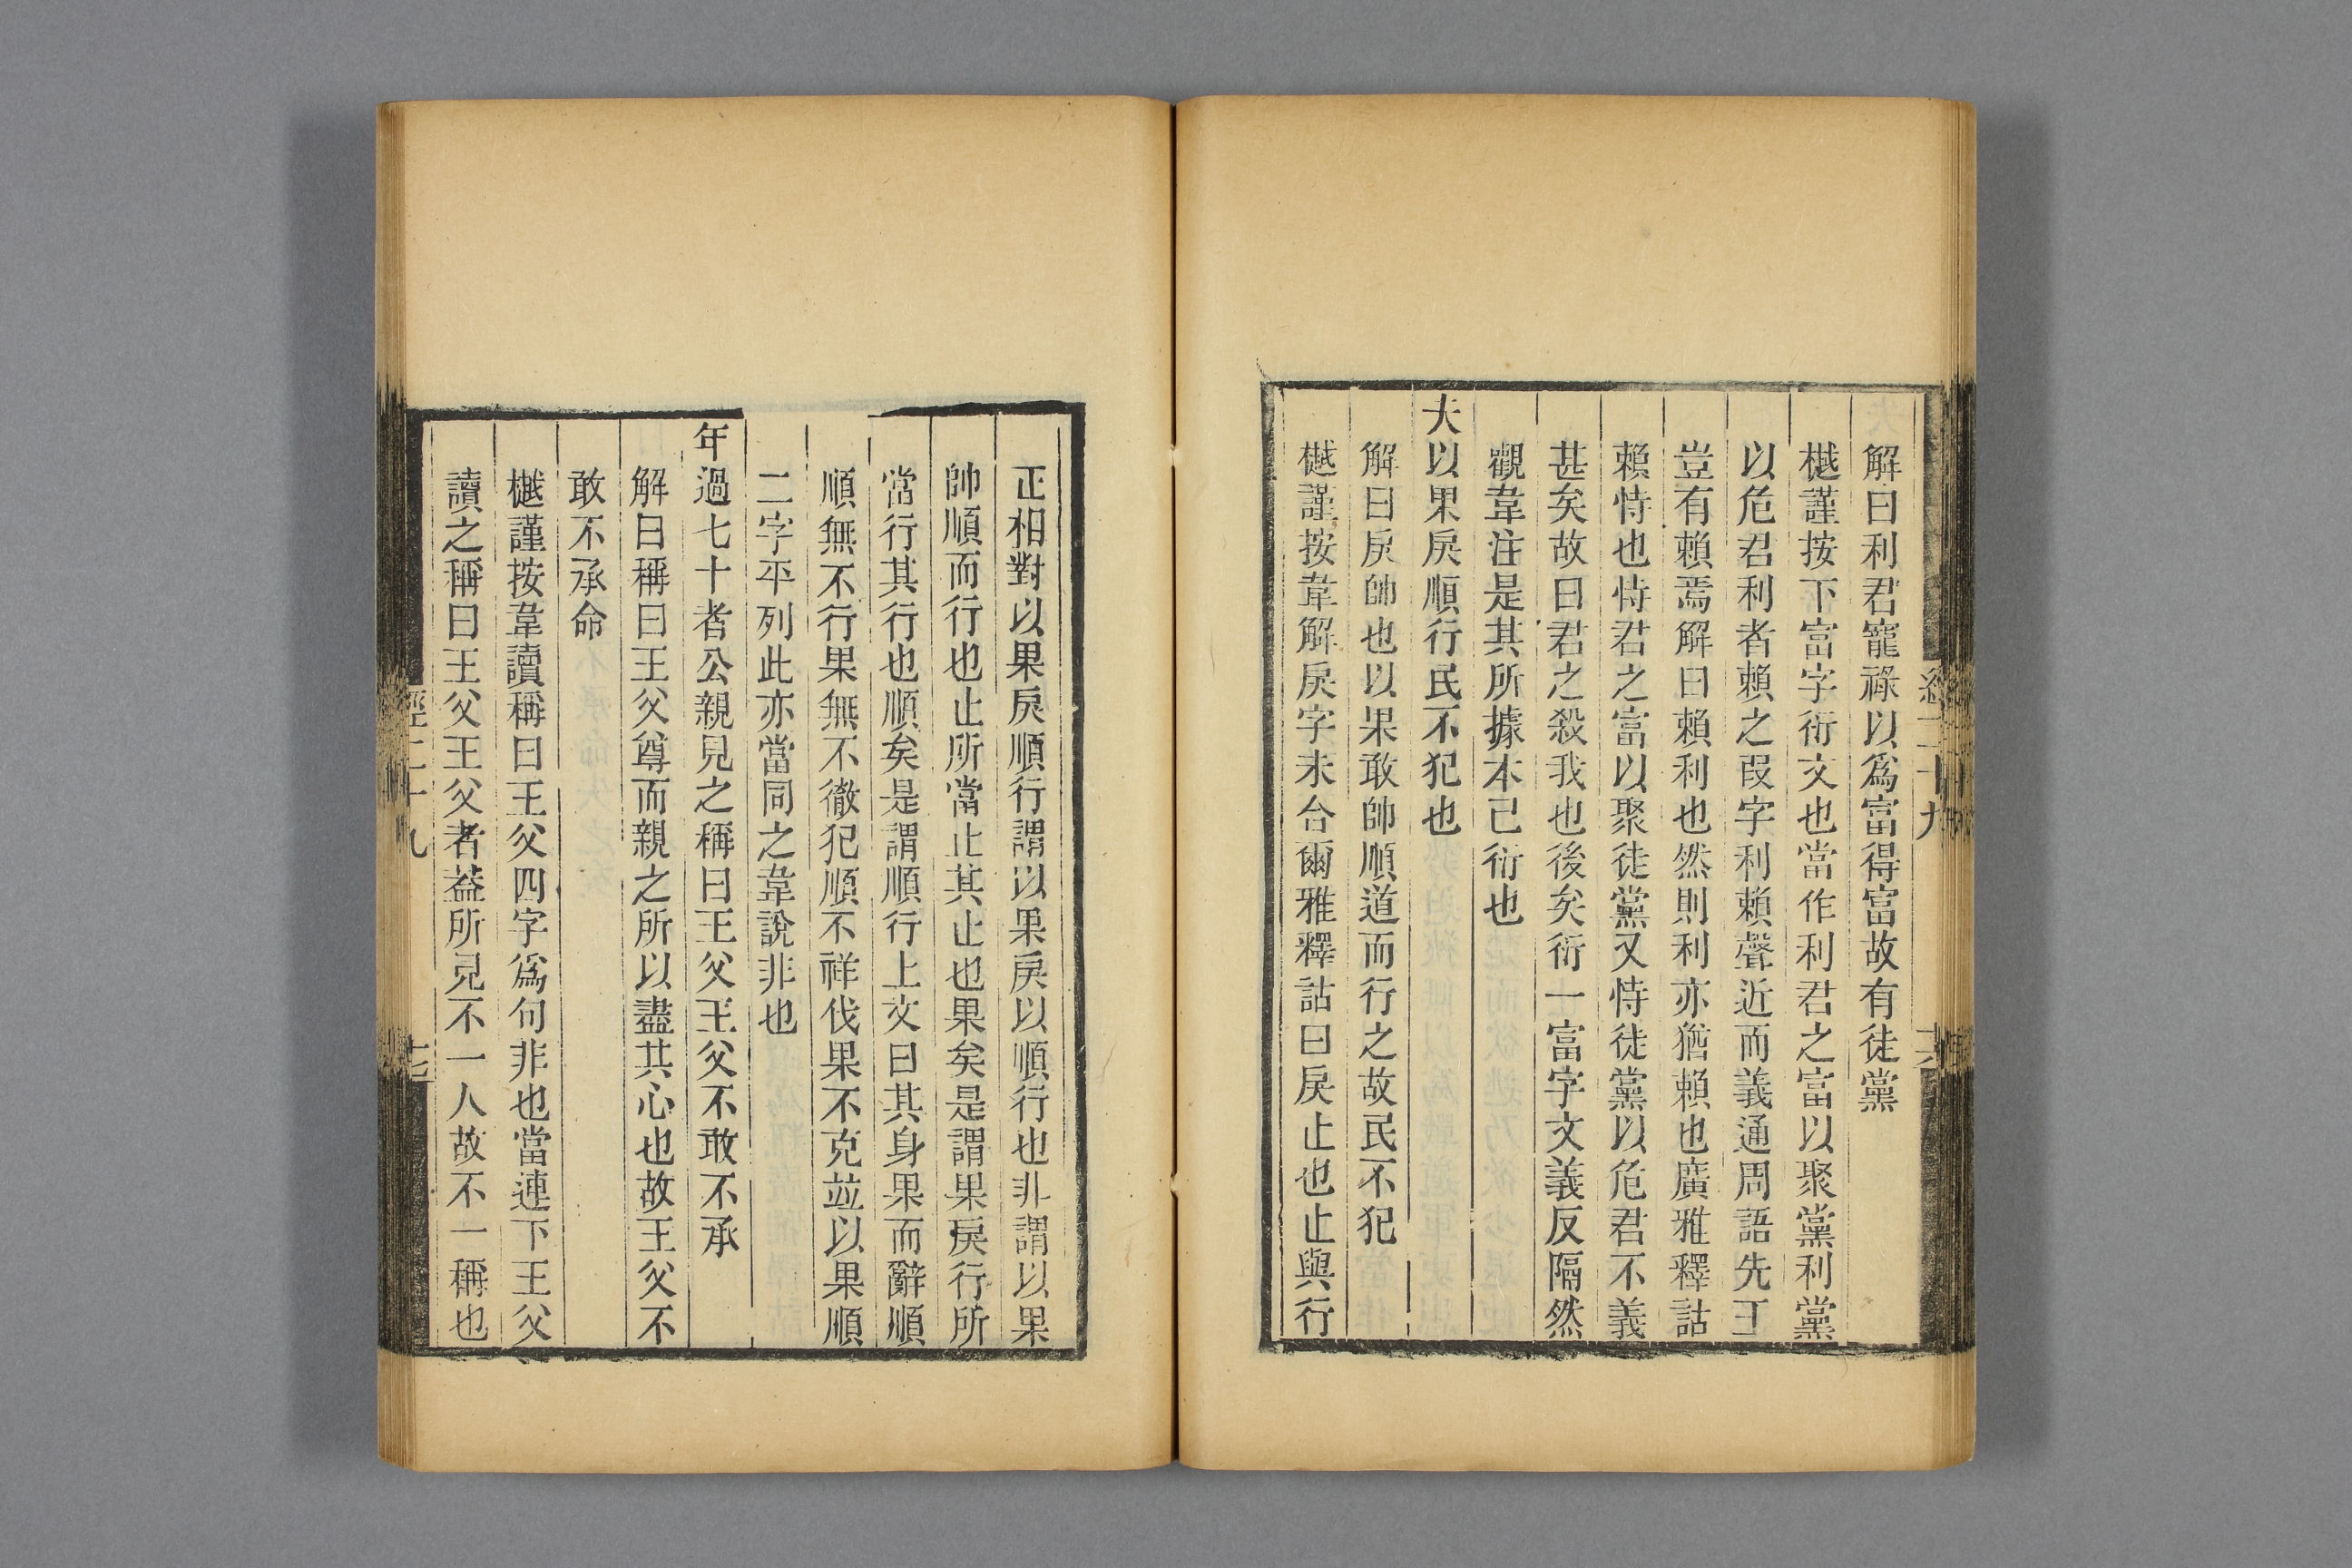 解曰利君寵祿以爲富得富故有徒黨
樾謹按下富字衍文也當作利君之富以聚黨利黨
以危君利者賴之叚字利賴聲近而義通周語先王
豈有賴焉解曰賴利也然則利亦猶賴也廣雅釋詁
賴恃也恃君之富以聚徒黨又恃徒黨以危君不義
甚矣故曰君之殺我也後矣衍一富字文義反隔然
觀韋注是其所據本已衍也
大以果戾順行民不犯也
解曰戾帥也以果敢帥順道而行之故民不犯
樾謹按韋解戾字未合爾雅釋詁曰戾止也止與行
經二十九
正相對以果戾順行謂以果戾以順行也非謂以果
帥順而行也止所當止其止也果矣是謂果戾行所
當行其行也順矣是謂順行上文曰其身果而辭順
順無不行果無不徹犯順不祥伐果不克竝以果順
二字平列此亦當同之韋說非也
年過七十者公親見之稱曰王父王父不敢不承
解曰稱曰王父尊而親之所以盡其心也故王父不
敢不承命
樾謹按韋讀稱曰王父四字爲句非也當連下王父
讀之稱曰王父王父者葢所見不一人故不一稱也